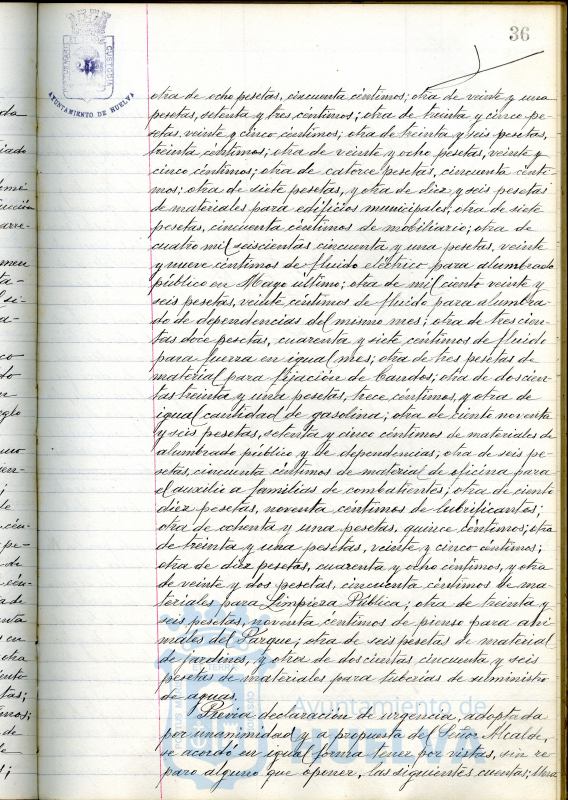 36
AYUNTAMIENTO DE HUELVA
otra de ocho pesetas, cincuenta céntimos; otra de veinte y una
pesetas, setenta y tres céntimos; otra de treinta y cinco pe-
setas, veinte y cinco céntimos; otra de treinta y seis pesetas,
treinta céntimos; otra de veinte y ocho pesetas, veinte y
cinco céntimos; otra de catorce pesetas, cincuenta cénti-
mos; otra de siete pesetas, y otra de diez y seis pesetas
de materiales para edificios municipales; otra de siete
pesetas, cincuenta céntimos de mobiliario; otra de
cuatro mil seiscientas cincuenta y una pesetas, veinte
y nueve céntimos de fluido eléctrico para alumbrado
público en Mayo último; otra de mil ciento veinte y
seis pesetas, veinte céntimos de fluido para alumbra-
do de dependencias del mismo mes; otra de trescien-
tas doce pesetas, cuarenta y siete céntimos de fluido
para fuerza en igual mes; otra de tres pesetas de
material para fijación de bandos; otra de doscien-
tas treinta y una pesetas, trece céntimos, y otra de
igual cantidad de gasolina; otra de ciento noventa
y seis pesetas, setenta y cinco céntimos de materiales de
alumbrado público y de dependencias; otra de seis pe-
setas, cincuenta céntimos de material de oficina para
el auxilio a familias de combatientes; otra de ciento
diez pesetas, noventa céntimos de lubrificantes;
otra de ochenta y una pesetas, quince céntimos; otra
de treinta y una pesetas, veinte y cinco céntimos;
otra de diez pesetas, cuarenta y ocho céntimos, y otra
de veinte y dos pesetas, cincuenta céntimos de ma-
teriales para Limpieza Pública; otra de treinta y
seis pesetas, noventa céntimos de pienso para ani-
males del Parque; otra de seis pesetas de material
de jardines, y otra de doscientas cincuenta y seis
pesetas de materiales para tuberías de suministro
de aguas.
Previa declaración de urgencia, adoptada
por unanimidad y a propuesta del Señor Alcalde,
se acordó en igual forma tener por vistas, sin re
paro alguno que oponer, las siguientes cuentas; Una
Ayuntamiento de
HUELVA